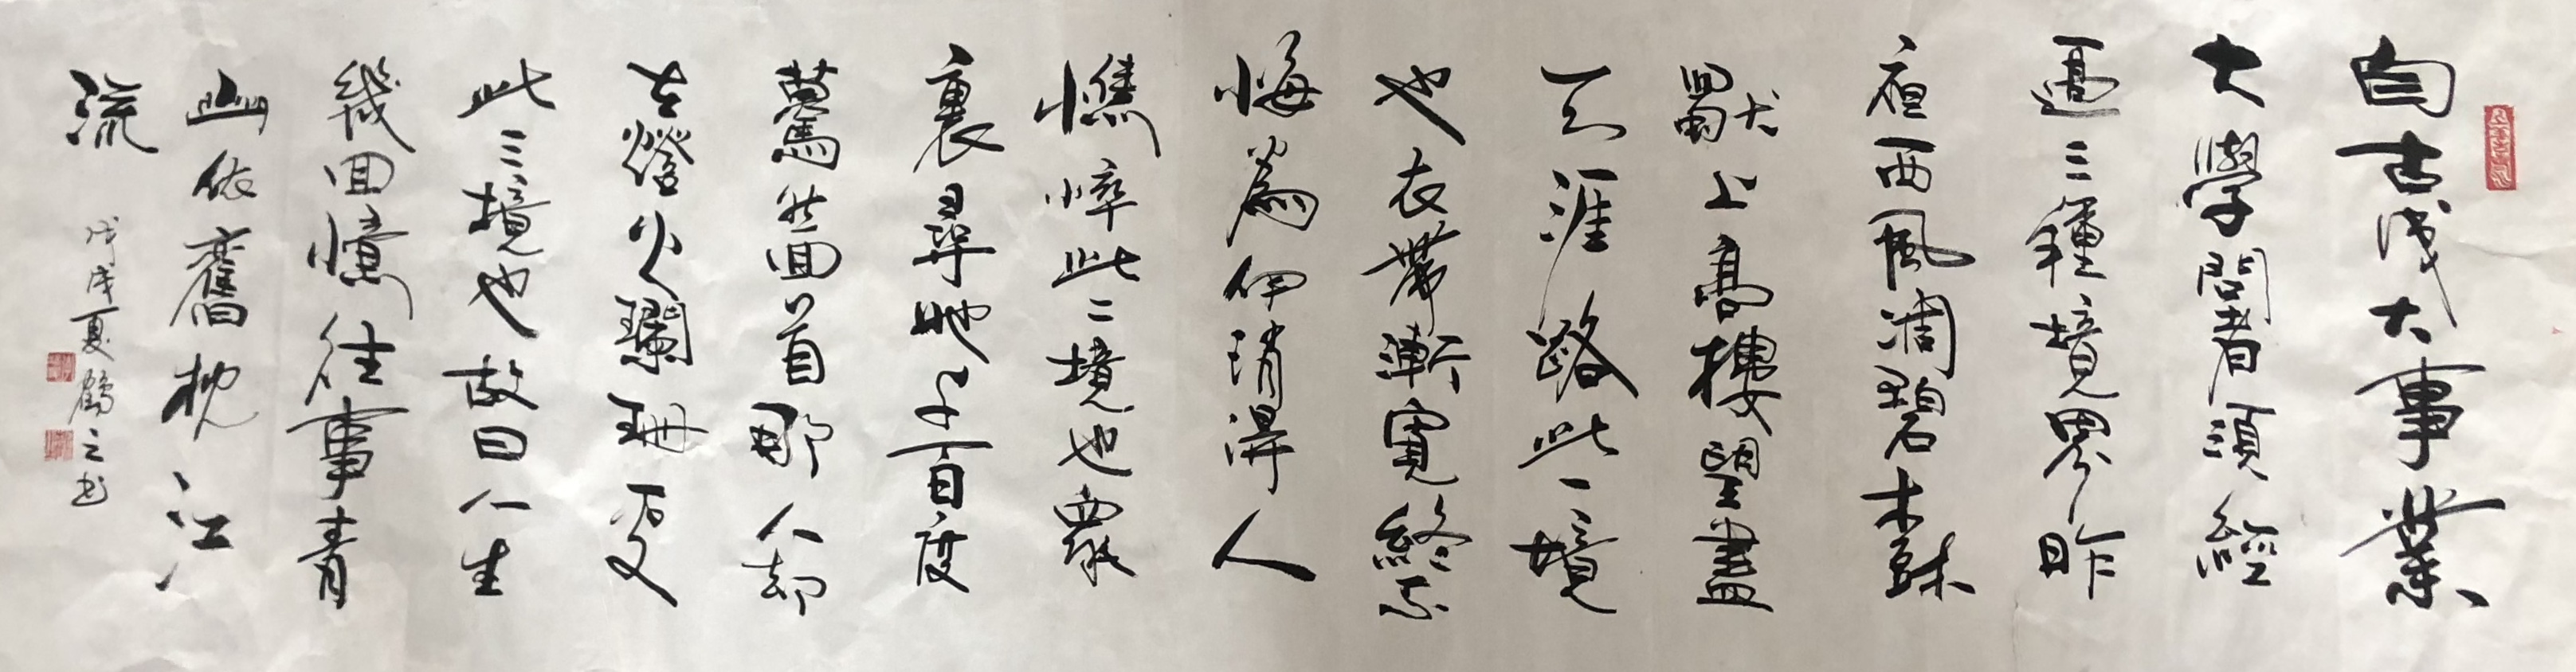 自古成大事業
大學問者須經
過三種境界昨
夜西風凋碧樹
獨上高樓望盡
天涯路此一境
也衣帶漸寬終不
悔為伊消得人
憔悴此二境也眾
裏尋他千百度
驀然回首那人却
在燈火瓓珊處
此三境也故曰人生
幾回憶往事青
山依舊枕江
流
戊戌夏鶴之书